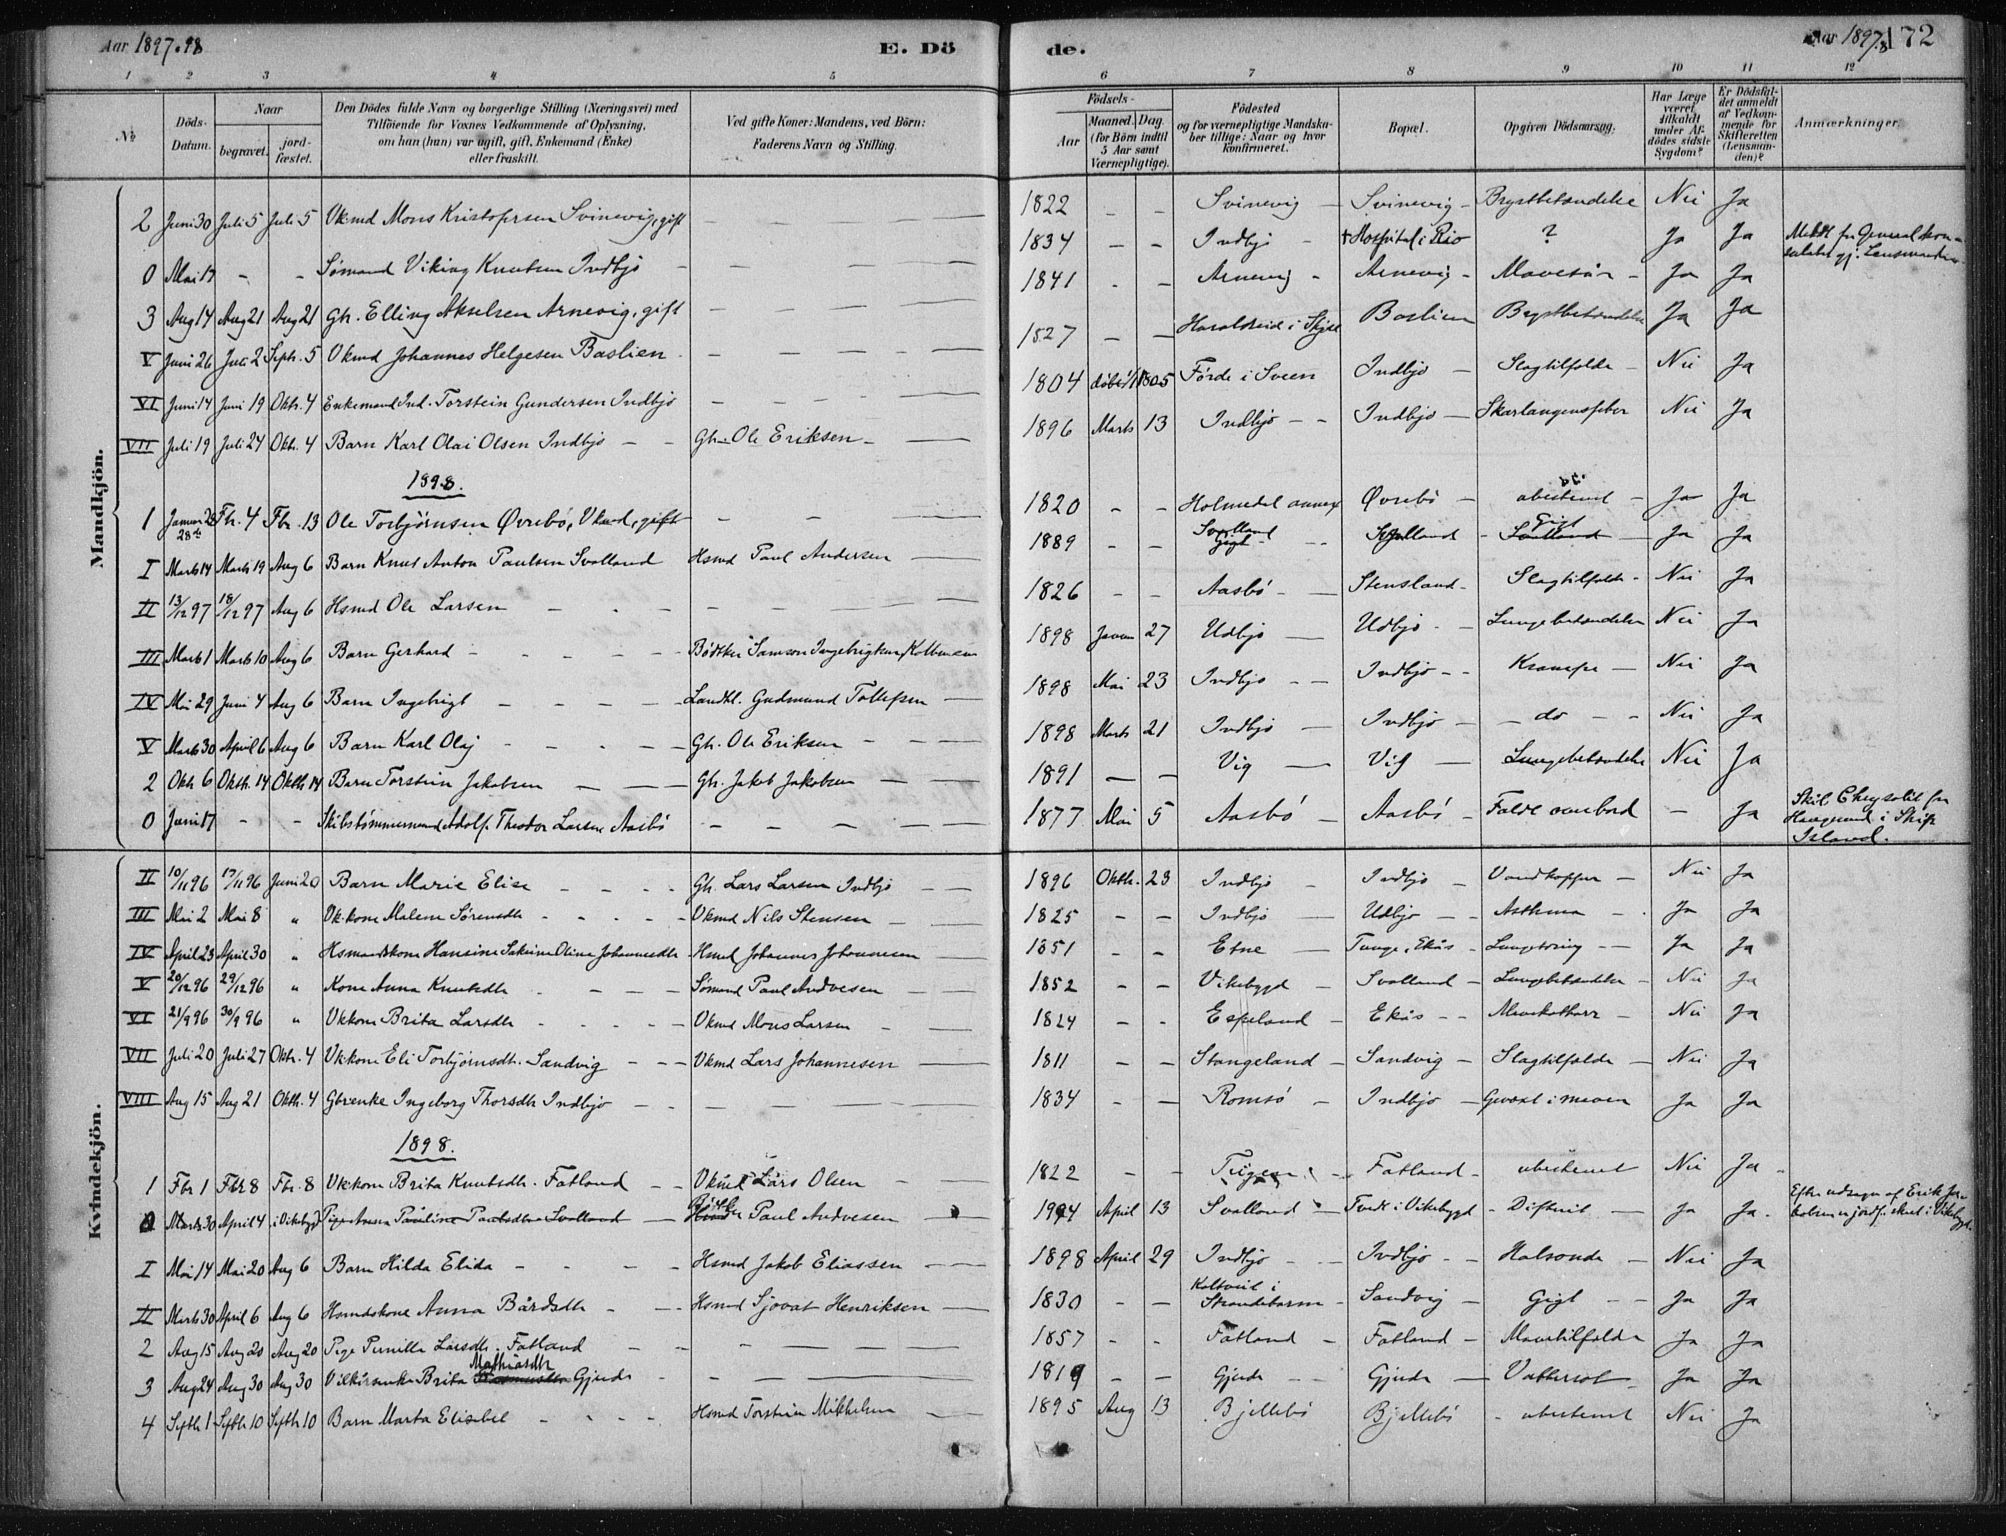 Aar 1897.98
E. Dö
de.
Aar 1897.8 172
1 2 3 4 5 6 7 8 9 10 11 12
№ Döds-Datum. Naar begravet. jord-fæstet. Den Dödes fulde Navn og borgerlige Stilling (Næringsvei) med Tilföiende for Voxnes Vedkommende af Oplysning, om han (hun) var ugift, gift, Enkemand (Enke) eller fraskilt. Ved gifte Koner: Mandens, ved Börn: Faderens Navn og Stilling. Födsels- Aar Maaned. Dag. (for Börn indtil 5 Aar samt Værnepligtige). Födested og for værnepligtige Mandskaber tillige: Naar og hvor konfirmeret. Bopæl. Opgiven Dödsaarsag. Har Læge været tilkaldt under Afdödes sidste Sygdom? Er Dödsfaldet anmeldt af Vedkommende for Skifteretten (Lensmanden)? Anmærkninger.
Mandkjön.
2 Juni 30 Juli 5 Juli 5 Vkmd Mons Kristofersen Svinevig, gift - - 1822 - - Svinevig Svinevig Brystbetændelse Nei Ja
0 Mai 17 - - Sømand Viking Knutsen Indbjo - 1834 - - Indbjo † Hospital i Rio ? Ja Ja Meldt fra Generalkonsulatet gj. Lensmanden
3 Aug 14 Aug 21 Aug 21 Gbr. Elling Akselsen Arnevig, gift - 1841 - - Arnevig Arnevig Mavesår Ja Ja
V Juni 26 Juli 2 Septr. 5 Vkmd Johannes Helgesen Baslien - 1827 - - Haraldseid i Skjold Baslien Brystbetændelse Ja Ja
VI Juni 14 Juni 19 Oktr. 4 Enkemand Ind. Torstein Gundersen Indbjo - 1804 døbt 1805 Förde i Sveen Indbjo Slagtilfælde Nei Ja
VII Juli 19 Juli 24 Oktr. 4 Barn Karl Olai Olsen Indbjo - Gbr. Ole Eriksen - 1896 Marts 13 Indbjo Indbjo Skarlagensfeber Nei Ja
1898.
1 Januar 28 28de Fbr. 4 Fbr. 13 Ole Torbjörnsen Øvrebö, Vkmd, gift - 1820 - - Holmedal annex Øvrebö ubestemt Ja Ja
I Marts 14 Marts 19 Aug 6 Barn Knut Anton Paulsen Svolland Hsmd Paul Andersen 1889 - - Svolland Svolland Gigt Ja Ja
II 13/12 97 18/12 97 Aug 6 Hsmd Ole Larsen - 1826 - - Aasbö Stensland Slagtilfælde Nei Ja
III Marts 1 Marts 10 Aug 6 Barn Gerhard - Bødtker Samson Ingebrigtsen 1898 Januar 27 Udbjo Udbjo Lungebetændelse Nei Ja
IV Mai 29 Juni 4 Aug 6 Barn Ingebrigt - Landhl. Gudmund Tollefsen 1898 Mai 23 Indbjo Indbjo Krampe Nei Ja
V Marts 30 April 6 Aug 6 Barn Karl Olaj - Gbr. Ole Eriksen 1898 Marts 21 Indbjo Indbjo do Nei Ja
2 Oktr 6 Oktbr. 14 Oktbr 14 Barn Torstein Jakobsen - Gbr. Jakob Jakobsen 1891 - - Vig Vig Lungebetændelse Nei Ja
0 Juni 17 - - Skibstömmermand Adolf Theodor Larsen Aasbö - 1877 Mai 5 Aasbö Aasbö Faldt overbord - Ja Skib Chrysolit fra Haugesund i Ship Island.
Kvindekjön.
II 10/11 96 17/11 96 Juni 20 Barn Marie Elise - Gbr. Lars Larsen Indbjo 1896 Oktb. 23 Indbjo Indbjo Vandkopper Nei Ja
III Mai 2 Mai 8 " Vk.kone Malene Sörensdtr - Vkmd Nils Stensen 1825 - - Indbjo Udbjo Asthma Ja Ja
IV April 23 April 30 " Hsmandskone Hansine Sakrine Oline Johannesdtr Hsmd Johannes Johannesen 1851 - - Etne Tunge, Ekås Lungetæring Ja Ja
V 20/12 96 29/12 96 " Kone Anna Knutsdtr - Sömand Paul Andvesen 1852 - - Vikebygd Svolland Lungebetændelse Nei Ja
VI 21/9 96 30/9 96 " Vkkone Brita Larsdtr - Vkmd Mons Larsen 1824 - - Espeland Ekås Mavekatharr Nei Ja
VII Juli 20 Juli 27 Oktr. 4 Vkkone Eli Torbjörnsdtr. Sandvig - Vkmd Lars Johannesen 1811 - - Stangeland Sandvig Slagtilfælde Nei Ja
VIII Aug 15 Aug 21 Oktb. 4 Gbrenke Ingeborg Thorsdtr Indbjo - 1834 - - Romsö Indbjo Gevæxt i maven Ja Ja
1898.
1 Fbr 1 Fbr 8 Fbr. 8 Vkkone Brita Knutsdtr. Fatland - Vkmd Lars Olsen 1822 - - Fatland ubestemt Nei Ja
0 Marts 30 April 4 i Vikebygd Pige Anna Pauline Paulsdtr Svolland Paul Andvesen April 13 Svolland Tvedt i Vikebygd Difterit Ja Ja Efter udsagn af Erik Jakobsen er jordf. skeet i Vikebygd.
I Mai 14 Mai 20 Aug 6 Barn Hilda Elida - Hsmd Jakob Eliassen 1898 April 29 Indbjo Indbjo Halsonde Nei Ja
II Marts 30 April 6 Aug 6 Hsmdskone Anna Bårdsdtr - Hsmd Sjovat Henriksen 1830 - - Koltveit i Strandebarm Sandvig Gigt Ja Ja
2 Aug 15 Aug 20 Aug 20 Pige Pernille Larsdtr. Fatland - 1857 - - Fatland Fatland Mavetilfælde Ja Ja
3 Aug 24 Aug 30 Aug 30 Vilkårsenke Brita Mathiasdtr Gjerde - 1819 - - Gjerde Gjerde Vattersot Ja Ja
4 Septbr 1 Septbr 10 Septbr 10 Barn Marta Elisabet - Hsmd Torstein Mikkelsen 1895 Aug 13 Bjellebö Bjellebö ubestemt Nei Ja